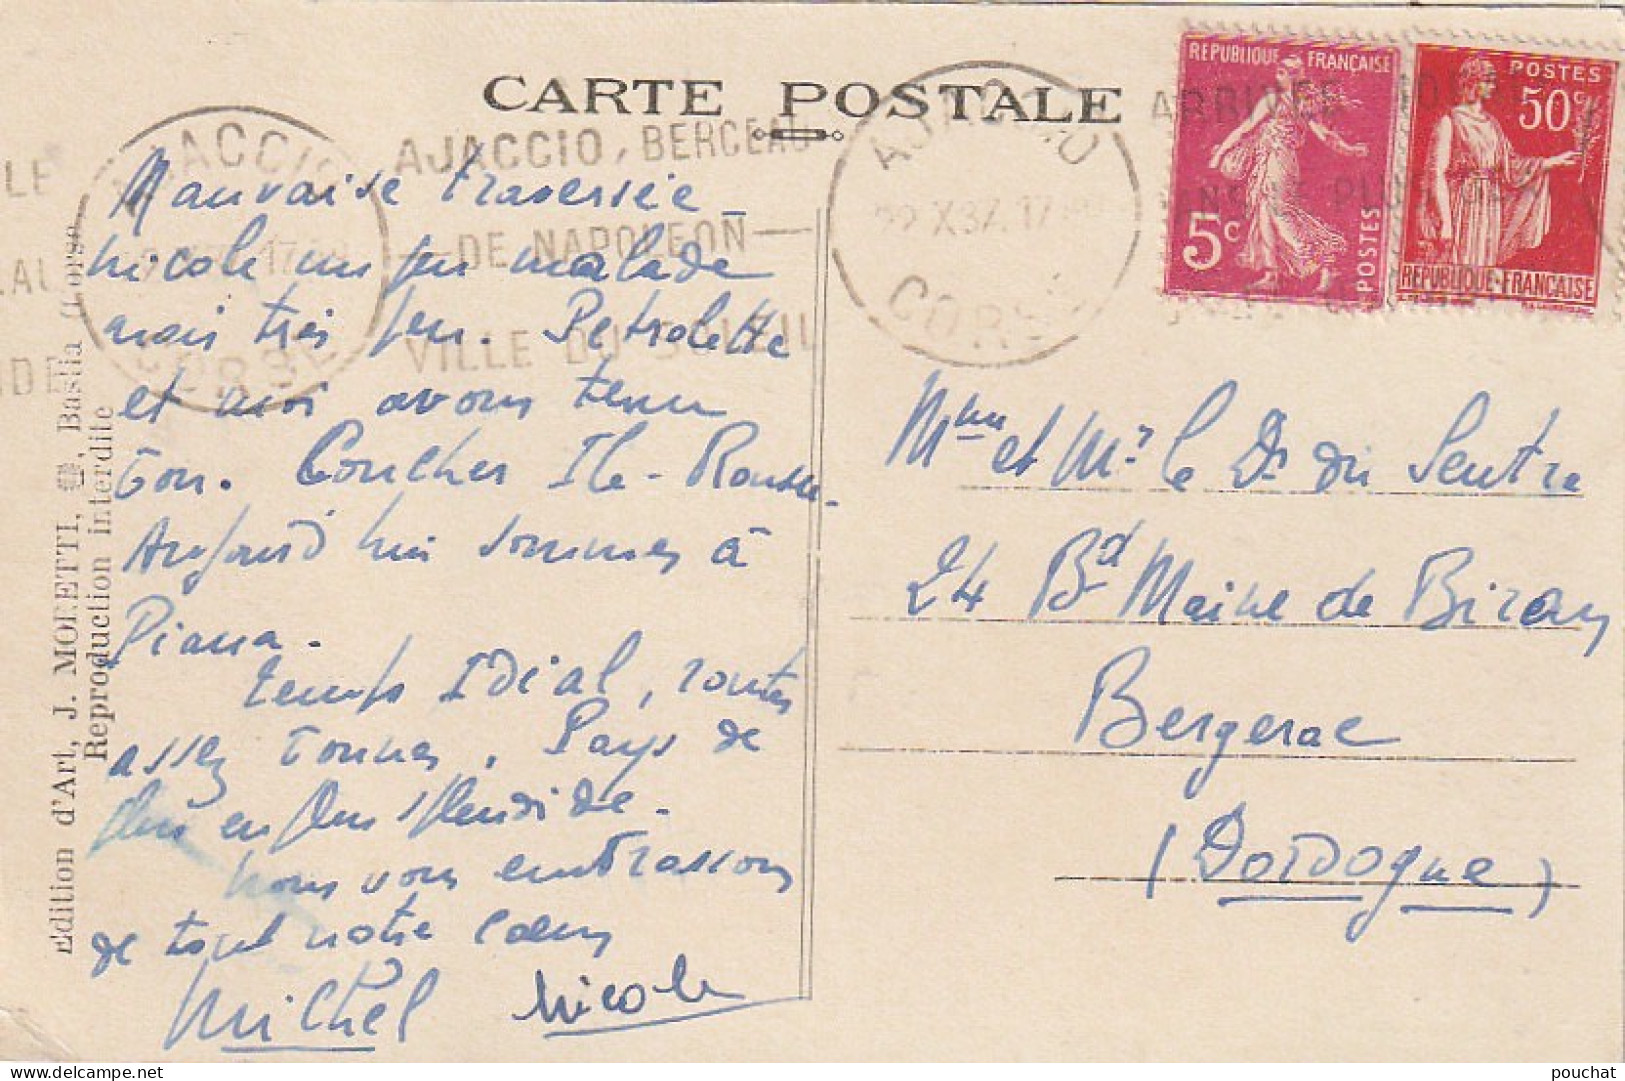 CARTE POSTALE
AJACCIO, BERCEAU
DE NAPOLEON
VILLE DU SOLEIL
AJACCIO
CORSE
AJACCIO
22 X 37. 17
CORSE
REPUBLIQUE FRANÇAISE
5c
POSTES
POSTES
50c
REPUBLIQUE-FRANÇAISE
Edition d'Art, J. MORETTI, Bastia (Corse
Reproduction interdite
Mauvaise traversée
Nicole un peu malade
mais très peu. Petrolette
et moi avons tenu
bon. Coucher Ile-Rousse.
Aujourd'hui sommes à
Piana.
temps Idéal, routes
assez bonnes. Pays de
plus en plus splendide.
Nous vous embrassons
de tout notre coeur
Michel Nicole
Mme et Mr le Dr du Sentre
24 Bd Maine de Biran
Bergerac
(Dordogne)
pouchat